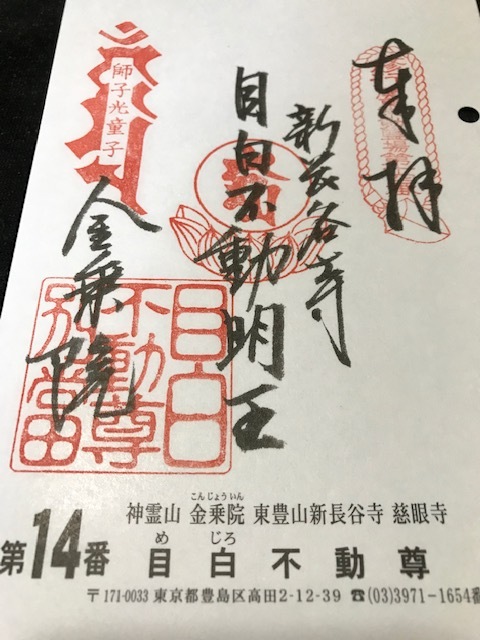 奉拝
新長谷寺
目白不動明王
金乗院
師子光童子
目白
不動尊
別當
こんじょういん
神霊山 金乗院 東豊山新長谷寺 慈眼寺
第14番
め じろ
目白不動尊
〒171-0033 東京都豊島区高田2-12-39 ☎(03)3971-1654番